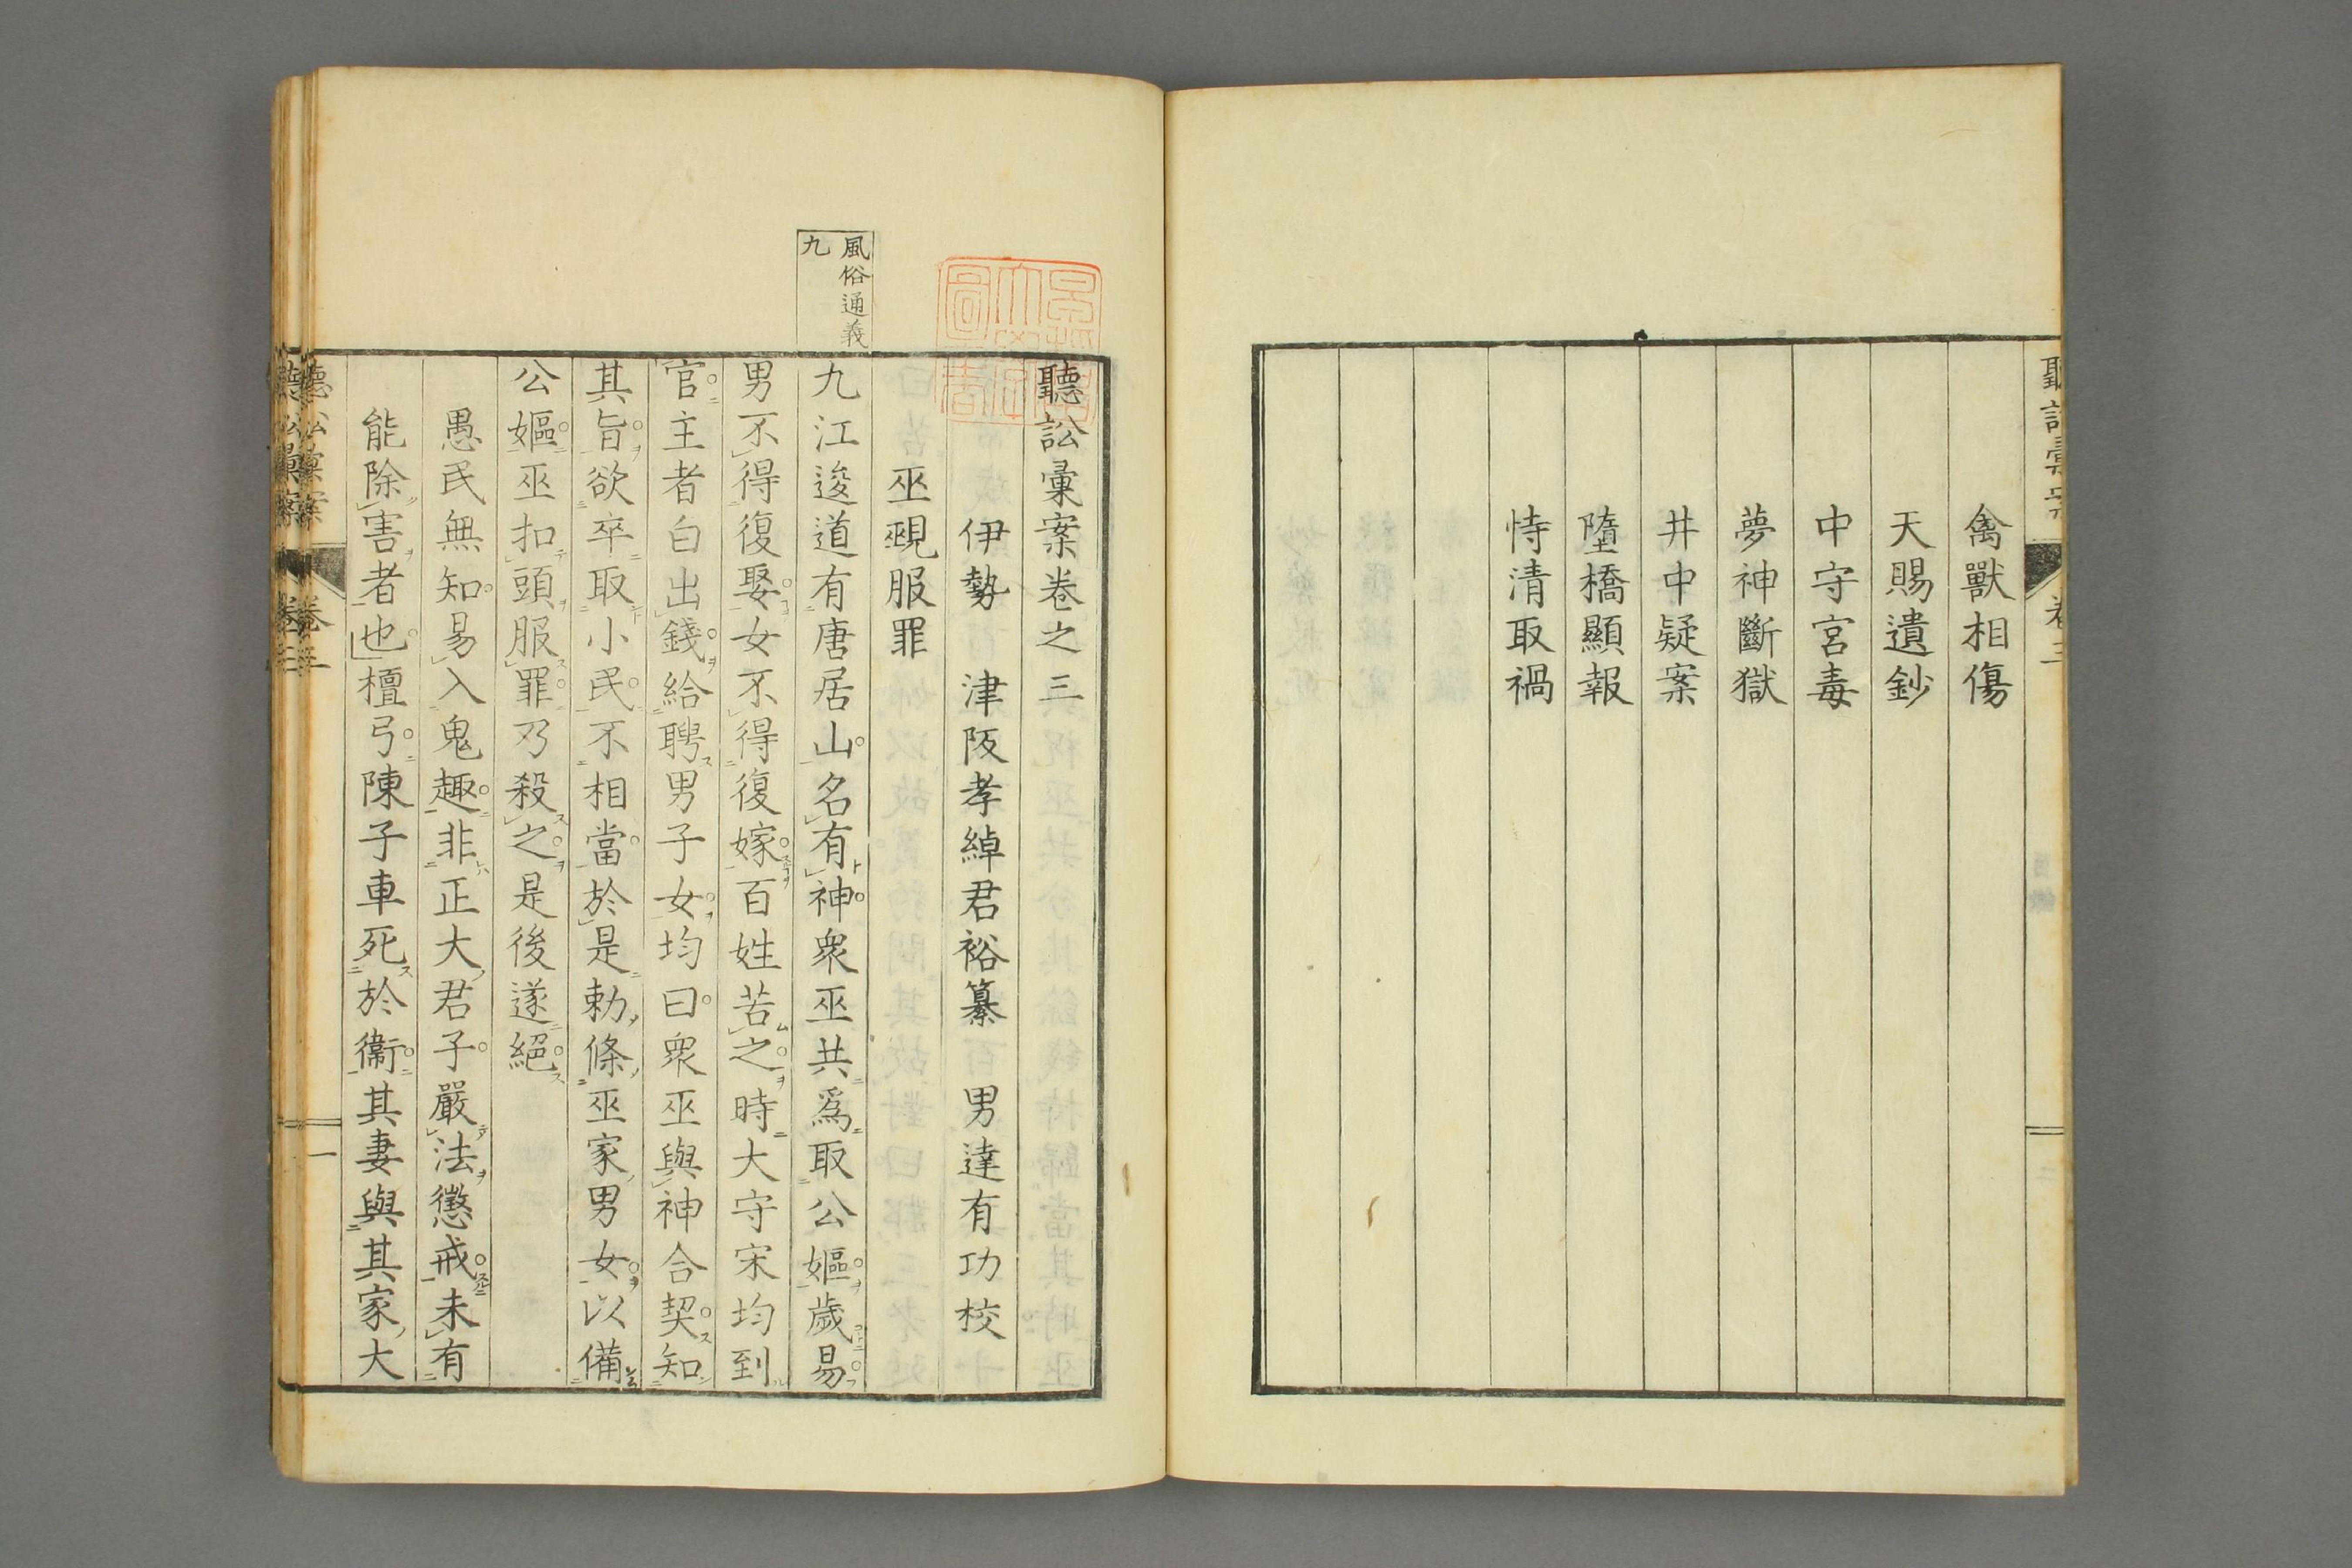 禽獸相傷
天賜遺鈔
中守宮毒
夢神斷獄
井中疑案
墮橋顯報
恃清取禍
聽訟彙案卷之三
伊勢 津阪孝綽君裕纂 男達有功校
巫覡服罪
風俗通義
九
九江逡道有唐居山名有神衆巫共爲取公嫗歲易
男不得復娶女不得復嫁百姓苦之時大守宋均到
官主者白出錢給聘男子女均曰衆巫與神合契知
其旨欲卒取小民不相當於是勅條巫家男女以備
公嫗巫扣頭服罪乃殺之是後遂絕
愚民無知易入鬼趣非正大君子嚴法懲戒未有
能除害者也檀弓陳子車死於衞其妻與其家大